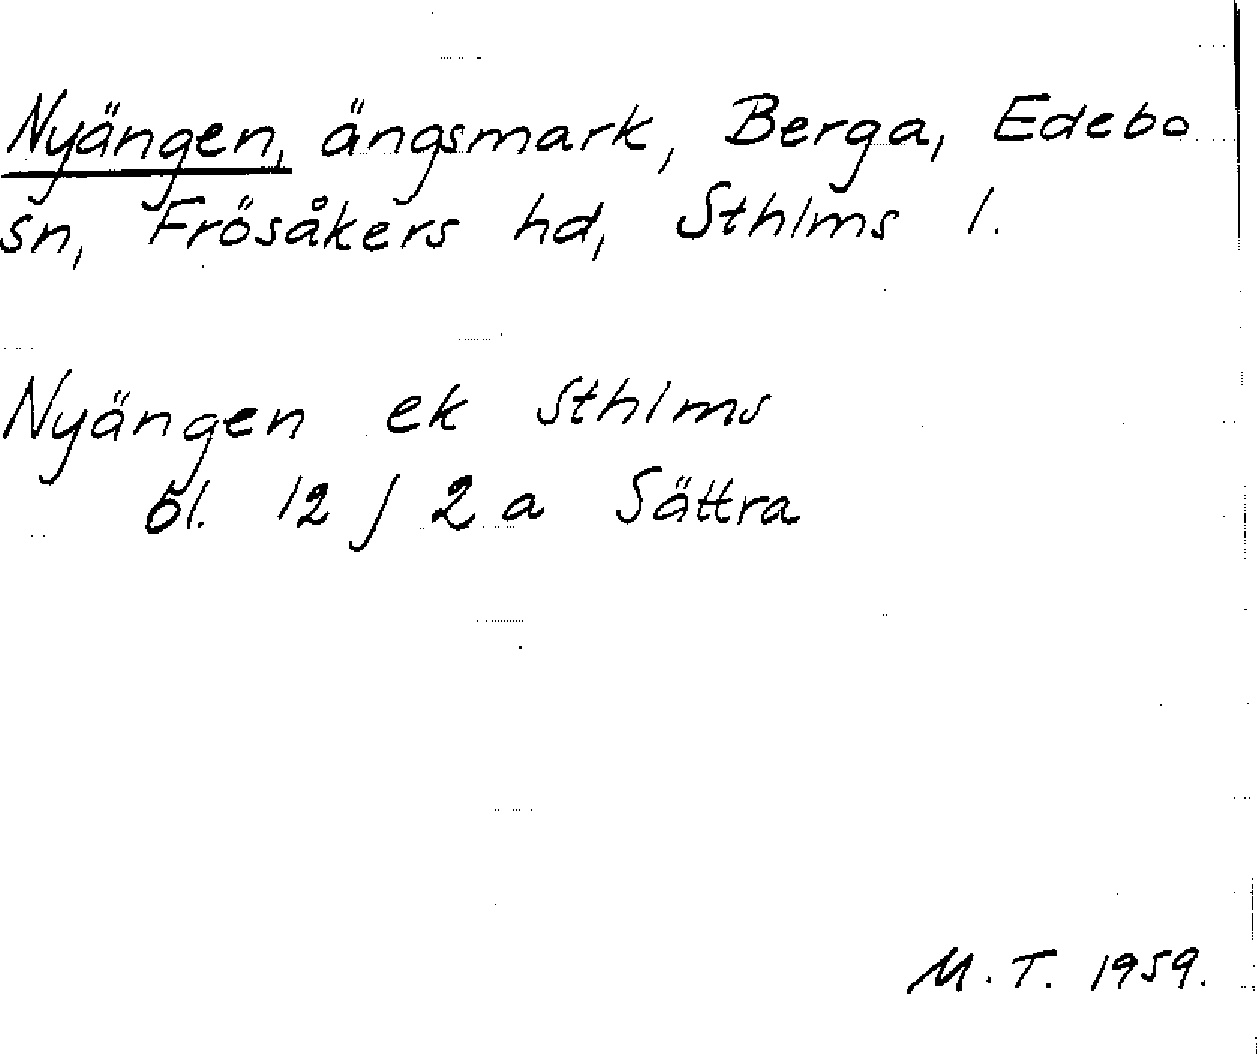 Nyängen, ängsmark, Berga, Edebo
sn, Frösåkers hd, Sthlms l.
Nyängen ek Sthlms
bl. 12 J 2 a Sättra
M.T. 1959.